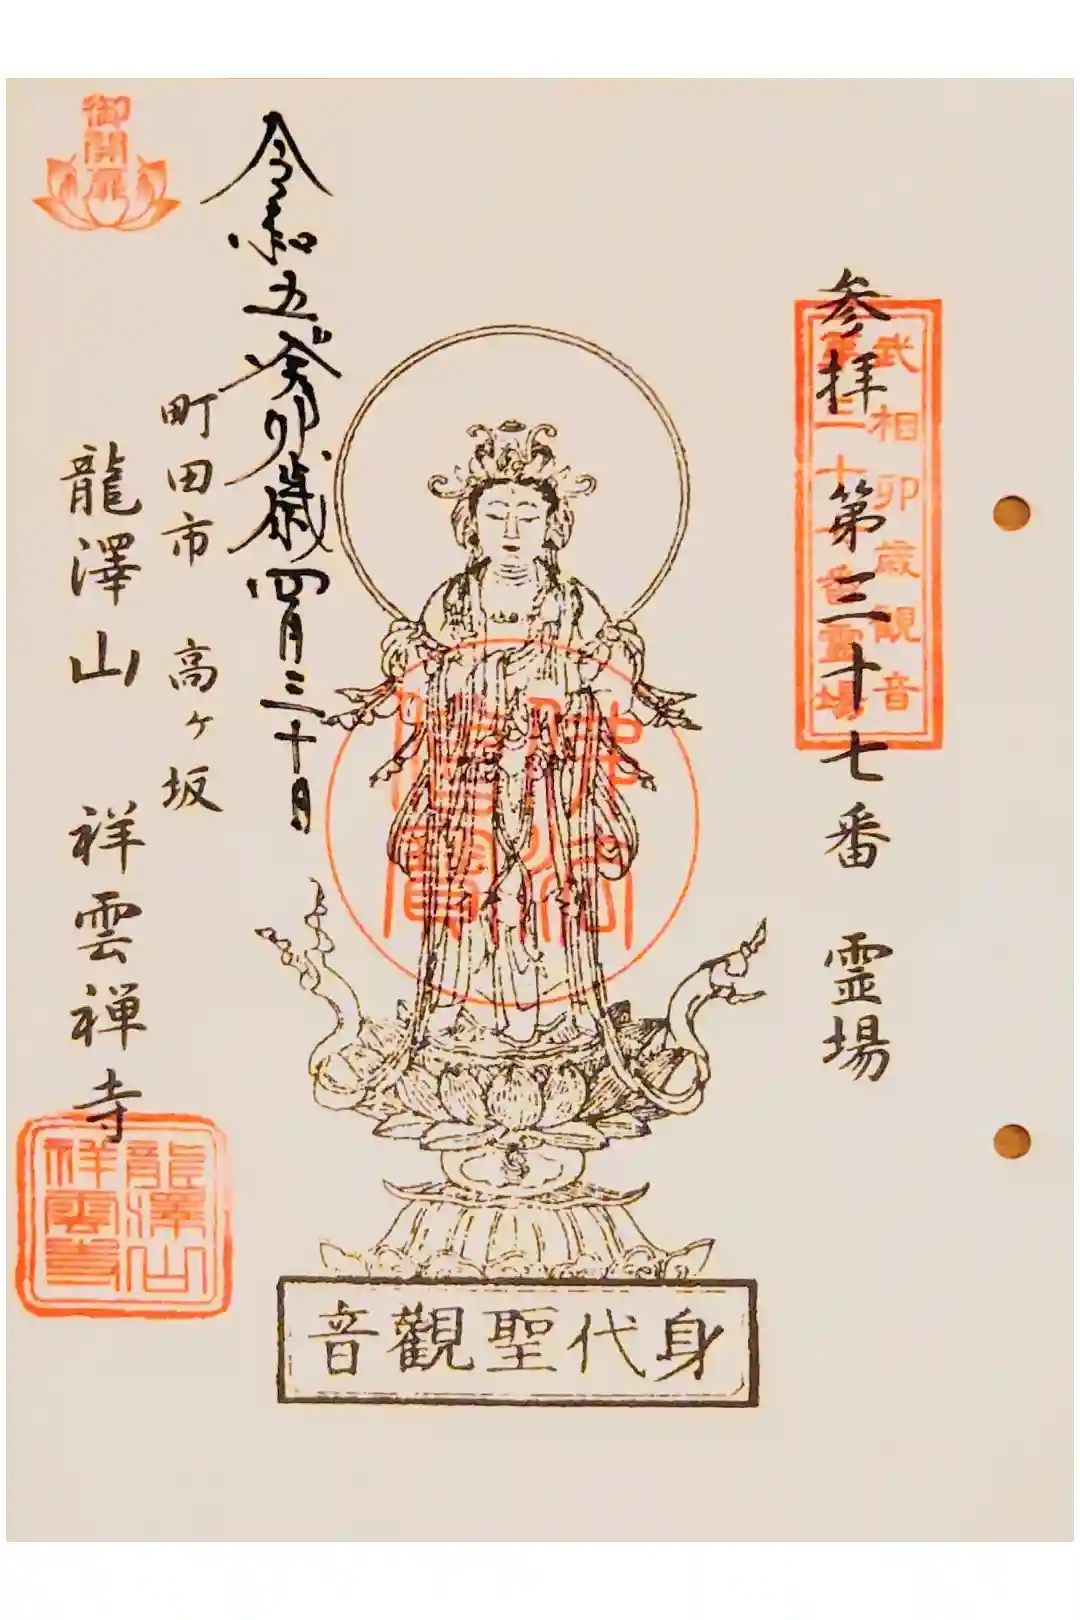 参拝 第三十七番 霊場
武相卯歳観音
第三十七番霊場
身代聖觀音
佛法僧寶
令和五癸卯歳四月三十日
町田市 高ヶ坂
龍澤山 祥雲禅寺
御開扉
龍澤山
祥雲寺